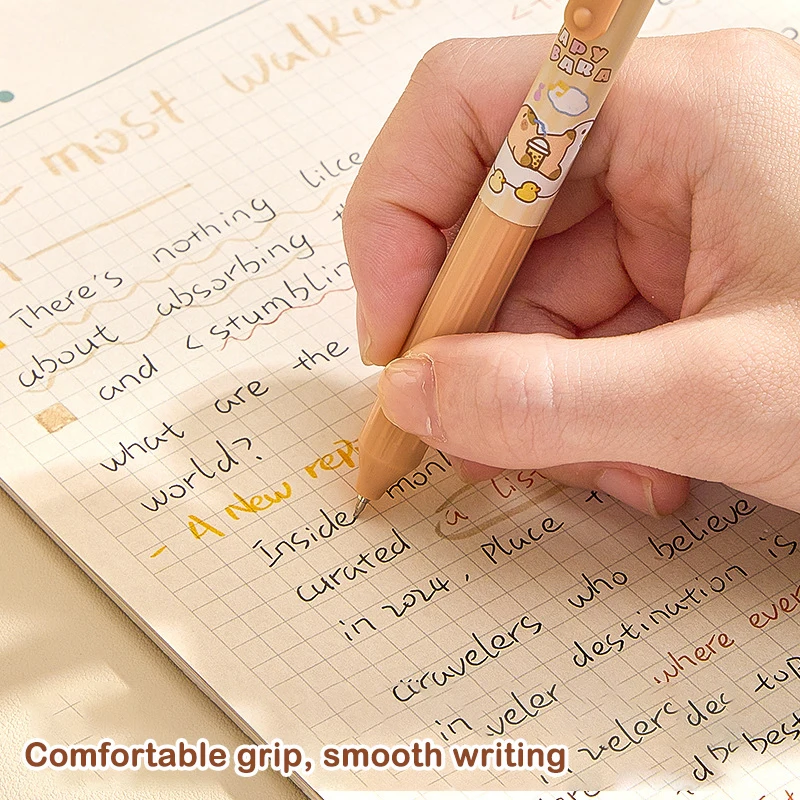 APY
BARA
most walkab
There's nothing like
about absorbing
and <stumblin
what are the
world?
- A New rep
Inside monk
curated a list
in 2024, Place
who believe
in veler destination is
where ever
best
Comfortable grip, smooth writing